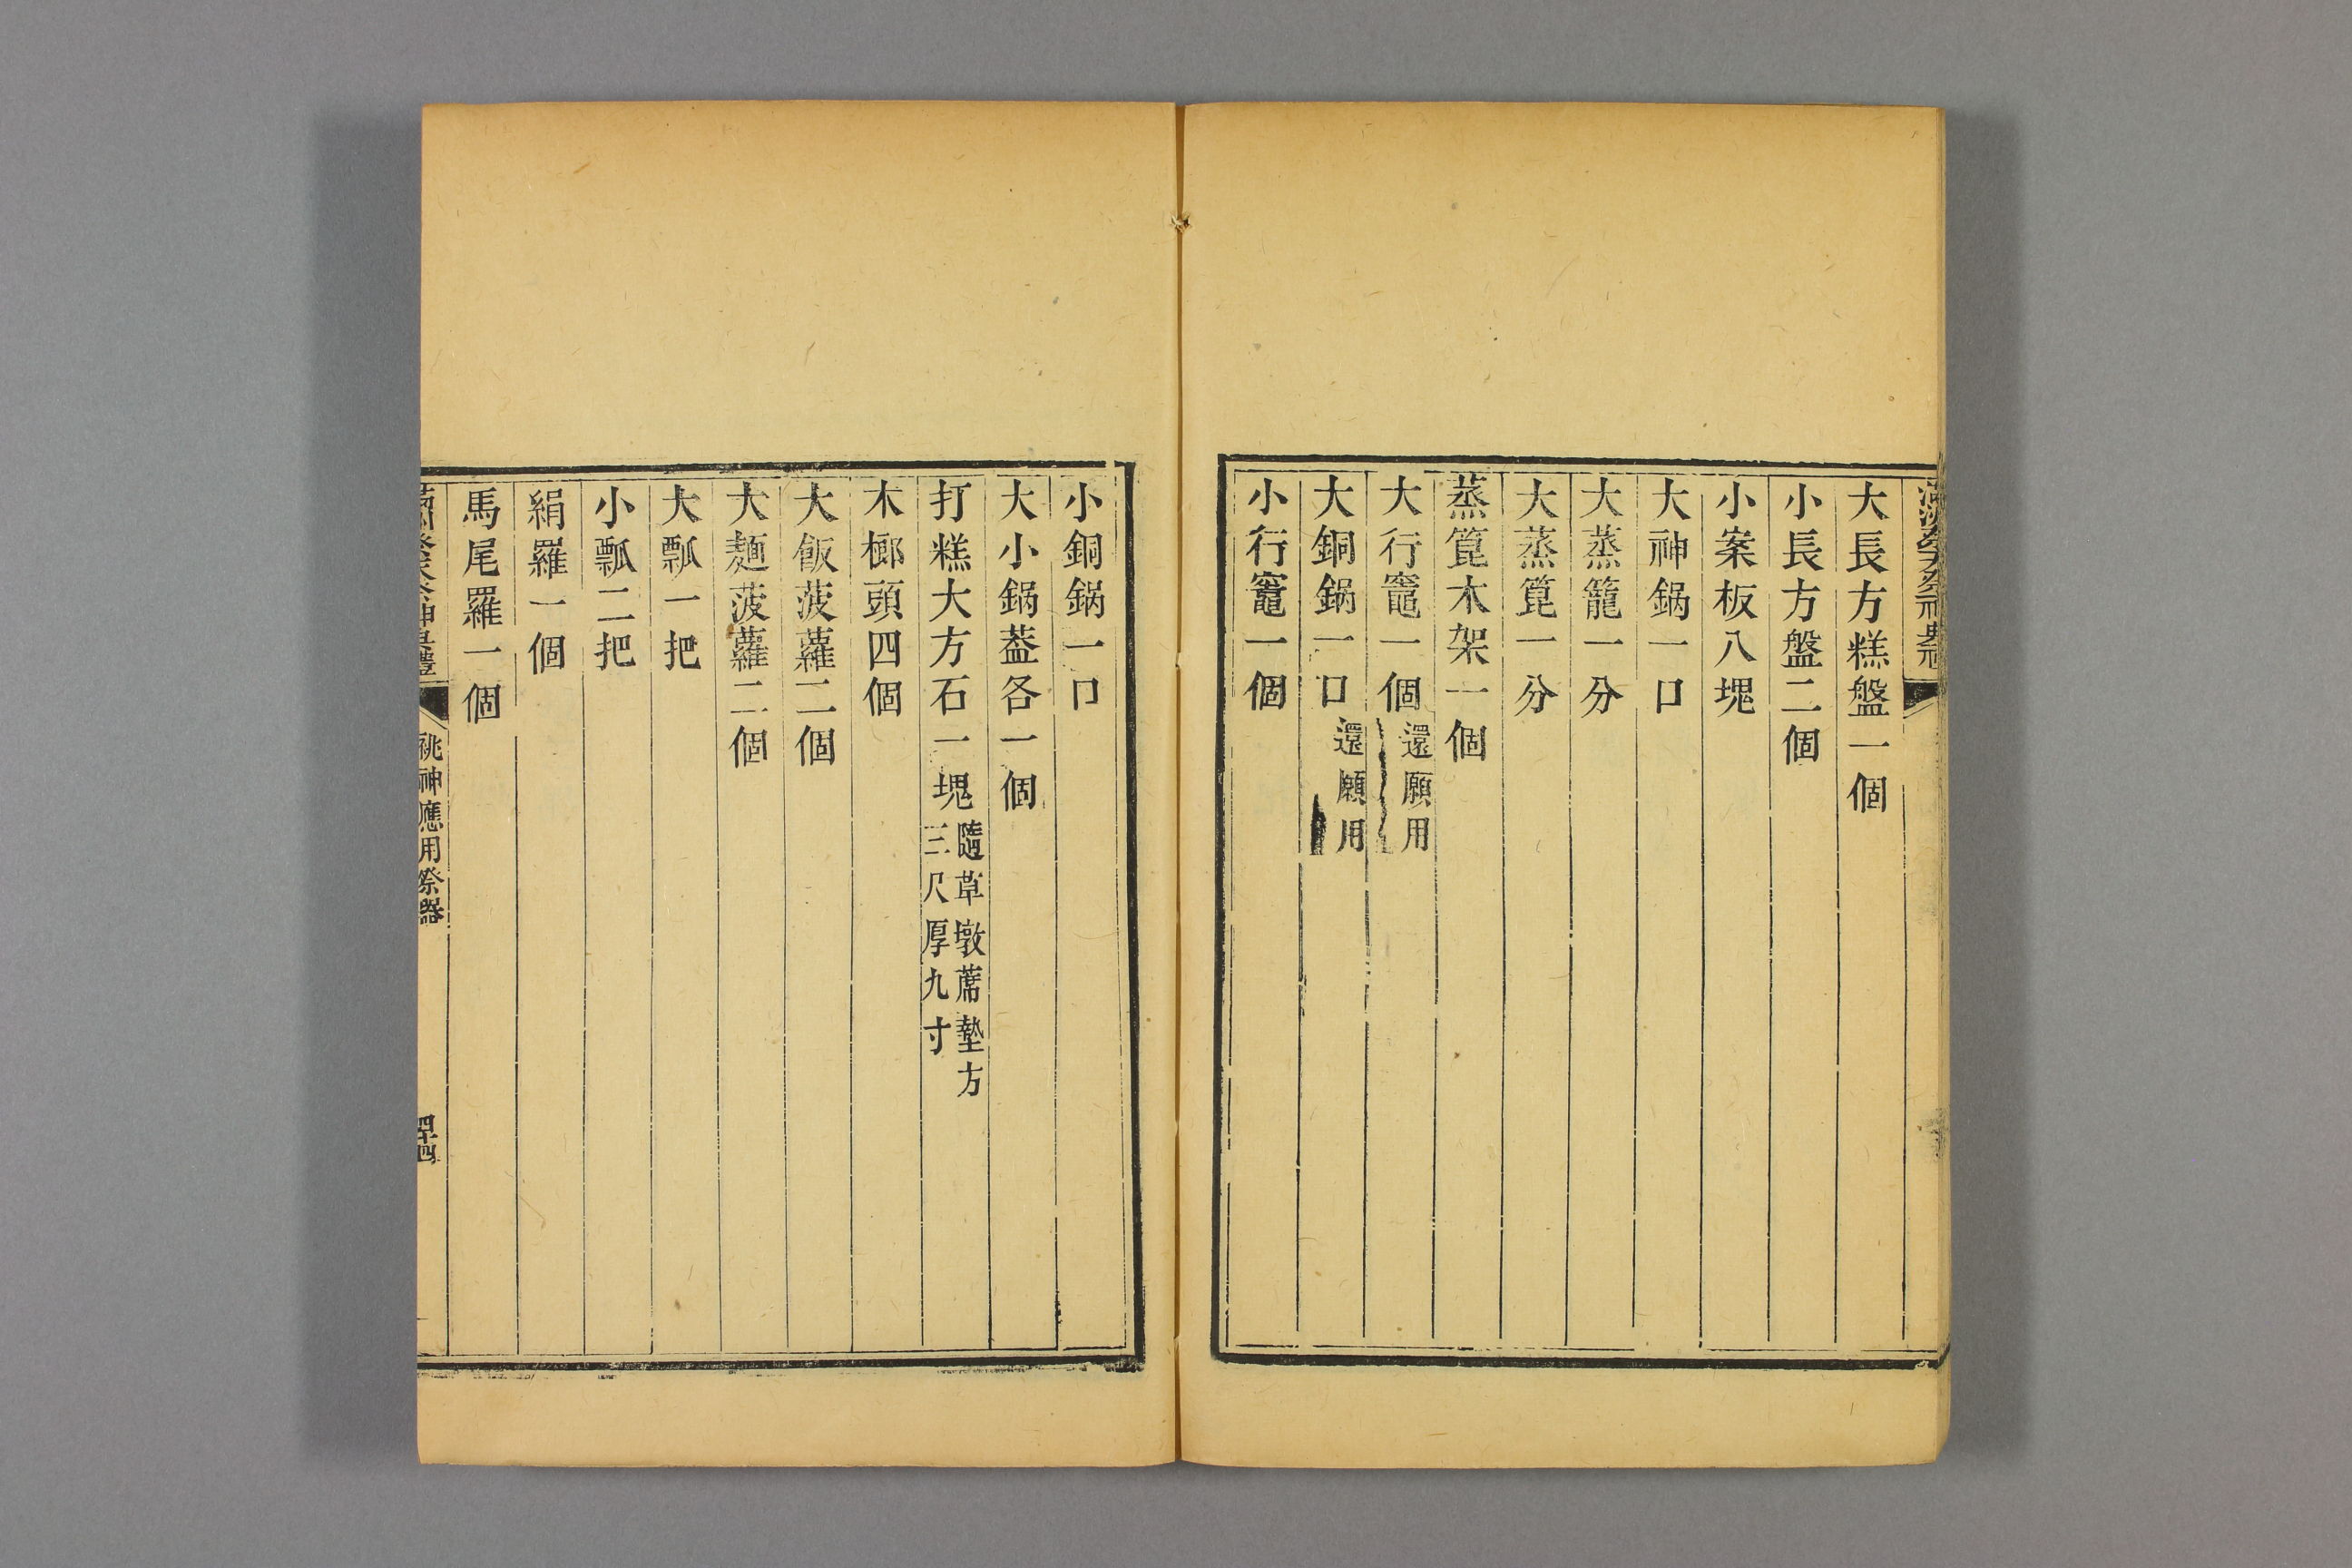 大長方糕盤一個
小長方盤二個
小案板八塊
大神鍋一口
大蒸籠一分
大蒸箆一分
蒸箆木架一個
大行竈一個還願用
大銅鍋一口還願用
小行竈一個
小銅鍋一口
大小鍋葢各一個
打糕大方石一塊隨草墩蓆墊方
三尺厚九寸
木榔頭四個
大飯菠蘿二個
大麺菠蘿二個
大瓢一把
小瓢二把
絹羅一個
馬尾羅一個
祧神應用祭器